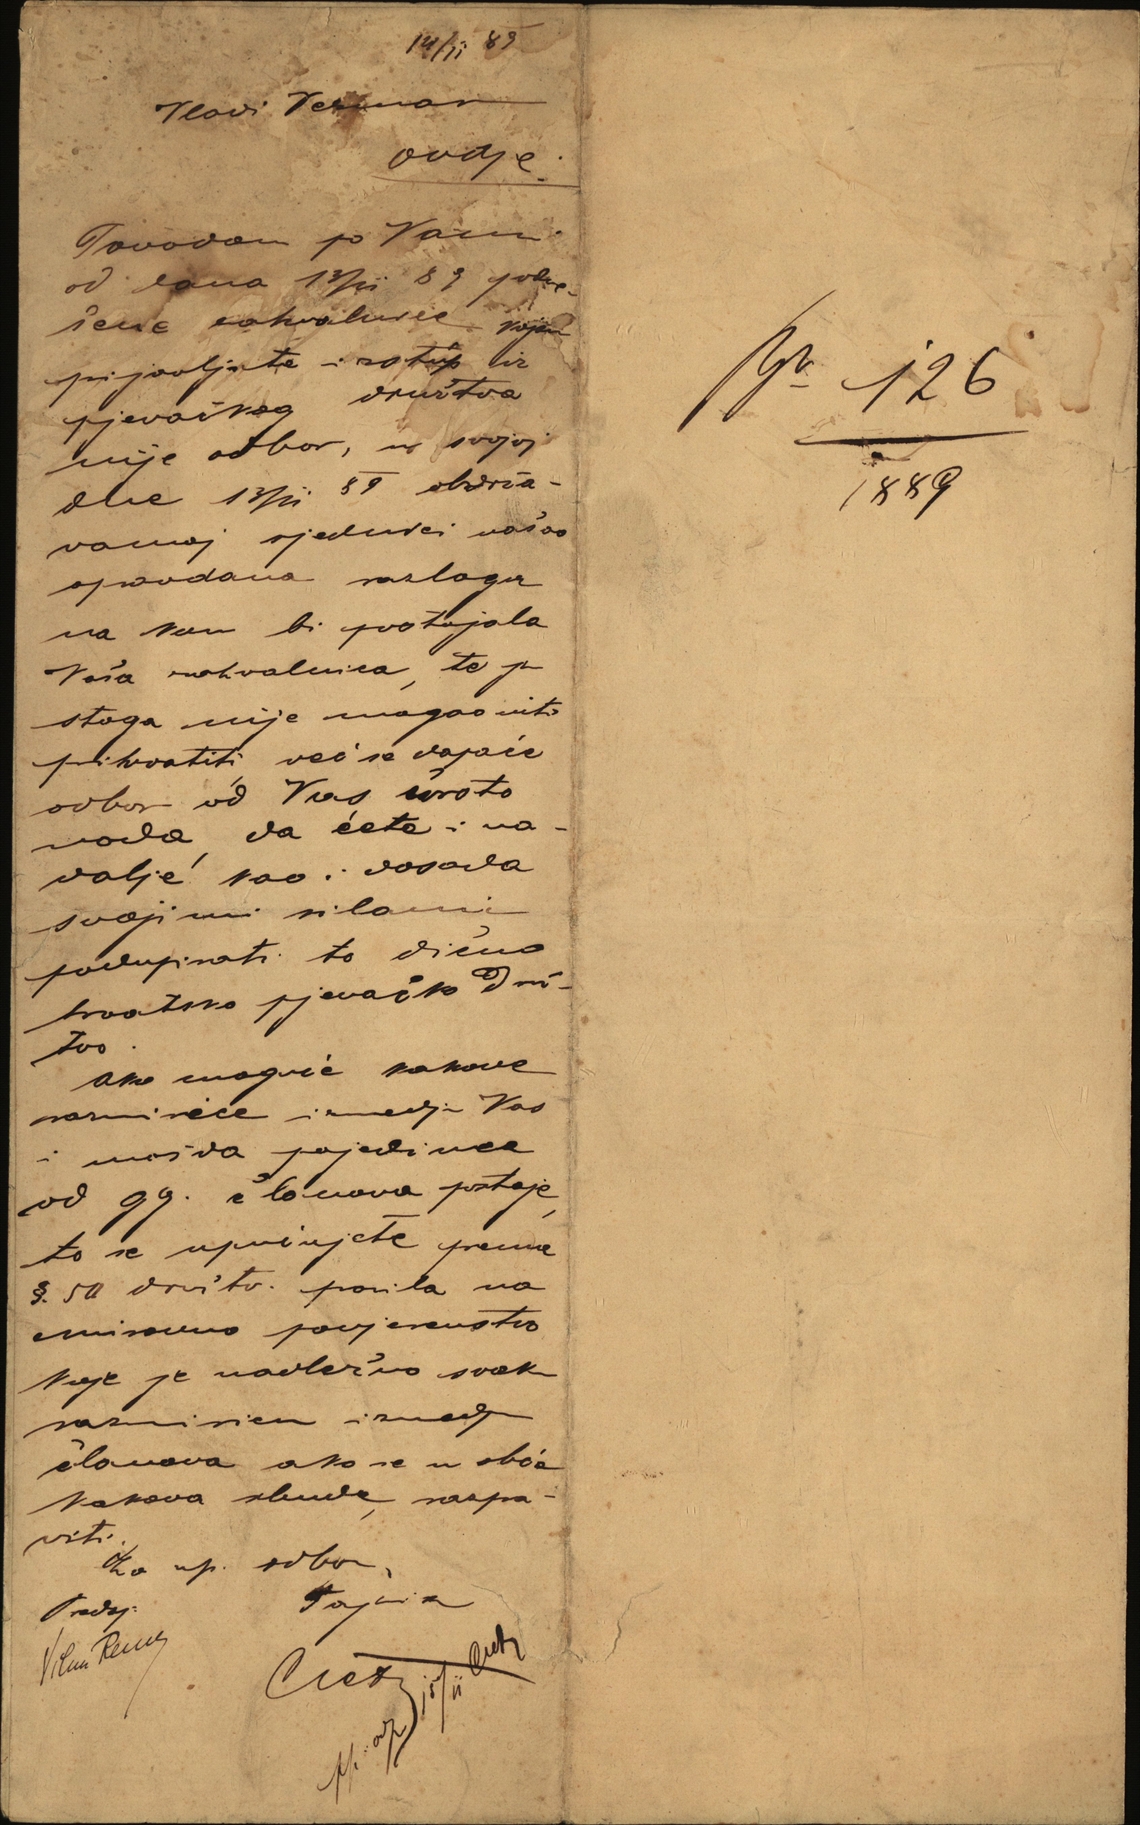 14/II 89
Vladi Vežmar
ovdje.
Povodom po Vami
od dana 13/II 89 podne-
šene zahvalnice kojom
prijavljujete i istup iz
pjevačkog društva
nije odbor, u svojoj
dne 13/II 89 obdrža-
vanoj sjednici našao
opravdana razloga
na kom bi postojala
Vaša zahvalnica, te ju
stoga nije mogao niti
prihvatiti već se dapače
odbor od Vas čvrsto
nada, da ćete i na-
dalje kao i dosada
svojimi silami
podupirati to dično
hrvatsko pjevačko Druž-
tvo.
Ako moguće kakove
razmirice izmedju Vas
i možda pojedinca
od gg. članova postoje,
to se upućujete prema
§. 50 družtv. pravila na
mirovno povjerenstvo
koje je nadležno svaku
razmiricu izmedju
članova ako se u obće
kakova sbude, razpra-
viti.
Za up. odbor,
Predsj. Tajnik
15/II
Br. 126
1889